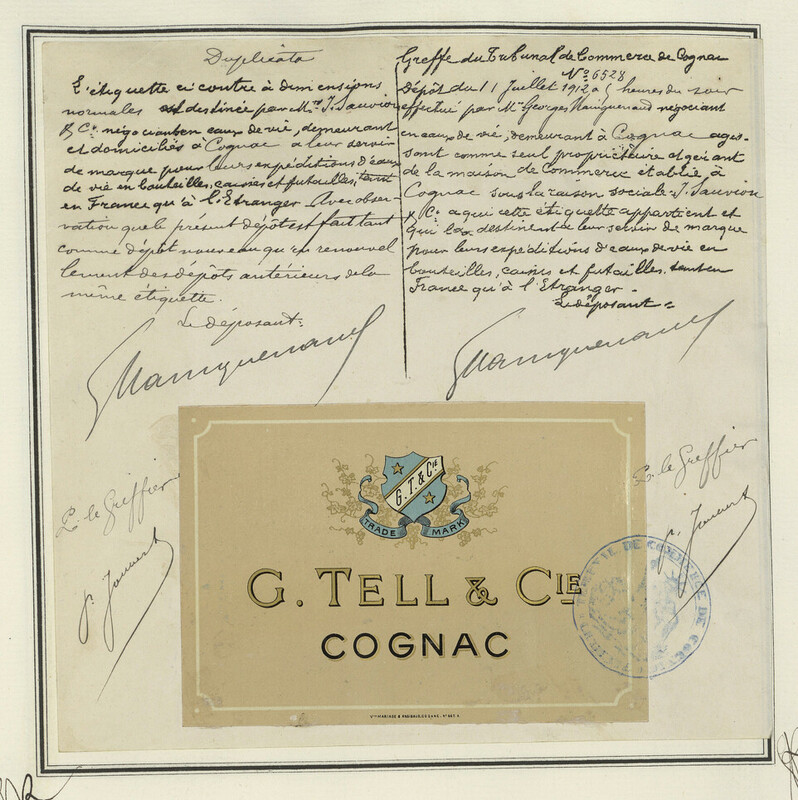 Duplicata
L'étiquette ci contre à dimensions
normales est destinée par Mrs J. Sauvion
& Co négociants en eaux de vie, demeurant
et domiciliés à Cognac à leur servir
de marque pour leurs expéditions d'eaux
de vie en bouteilles, caisses et futailles, tant
en France qu'à l'Etranger. Avec obser-
vation que le présent dépôt est fait tant
comme dépôt nouveau qu'en renouvel
lement des dépôts antérieurs de la
même étiquette.
Le déposant:
Greffe du Tribunal de Commerce de Cognac
No 6528
Dépôt du 11 Juillet 1912 à 5 heures du soir
effectué par Mr Georges Mainguenaud négociant
en eaux de vie, demeurant à Cognac agis-
sant comme seul propriétaire et gérant
de la maison de Commerce établie à
Cognac sous la raison sociale J. Sauvion
& Co a qui cette étiquette appartient et
qui la destinent à leur servir de marque
pour leurs expéditions d'eaux de vie en
bouteilles, caisses et futailles. tant en
France qu'à l'Etranger.
Le déposant:
GMainguenaud
GMainguenaud
P. le Greffier
P. le Greffier
G. T. & CIE
TRADE MARK
G. TELL & CIE
COGNAC
TRIBUNAL DE COMMERCE DE COGNAC